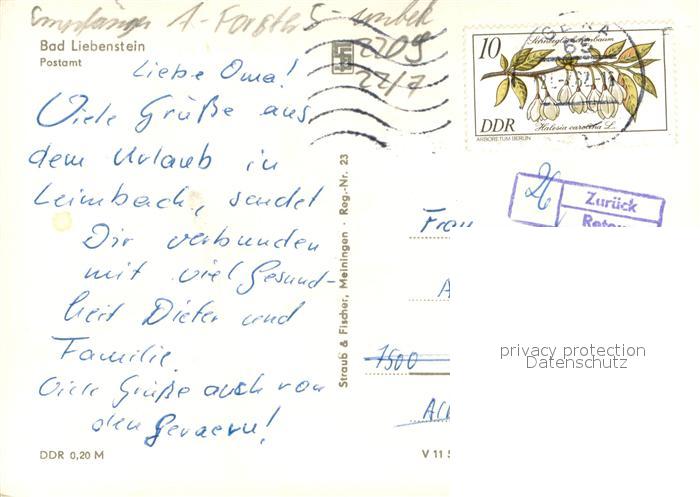 Empfänger
Bad Liebenstein
Postamt
2209
22/7
Liebe Oma!
Viele Grüße aus
dem Urlaub in
Leimbach, sendet
Dir verbunden
mit viel Gesund-
heit Dieter und
Familie.
Viele Grüße auch von
den Geraern!
DDR 0,20 M
V 11 5
Straub & Fischer, Meiningen · Reg.-Nr. 23
GERA
65
10
Schneeglöckchenbaum
Halesia carolina L.
DDR
ARBORETUM BERLIN
Zurück
Retour
Frau
A
7500
privacy protection
Datenschutz